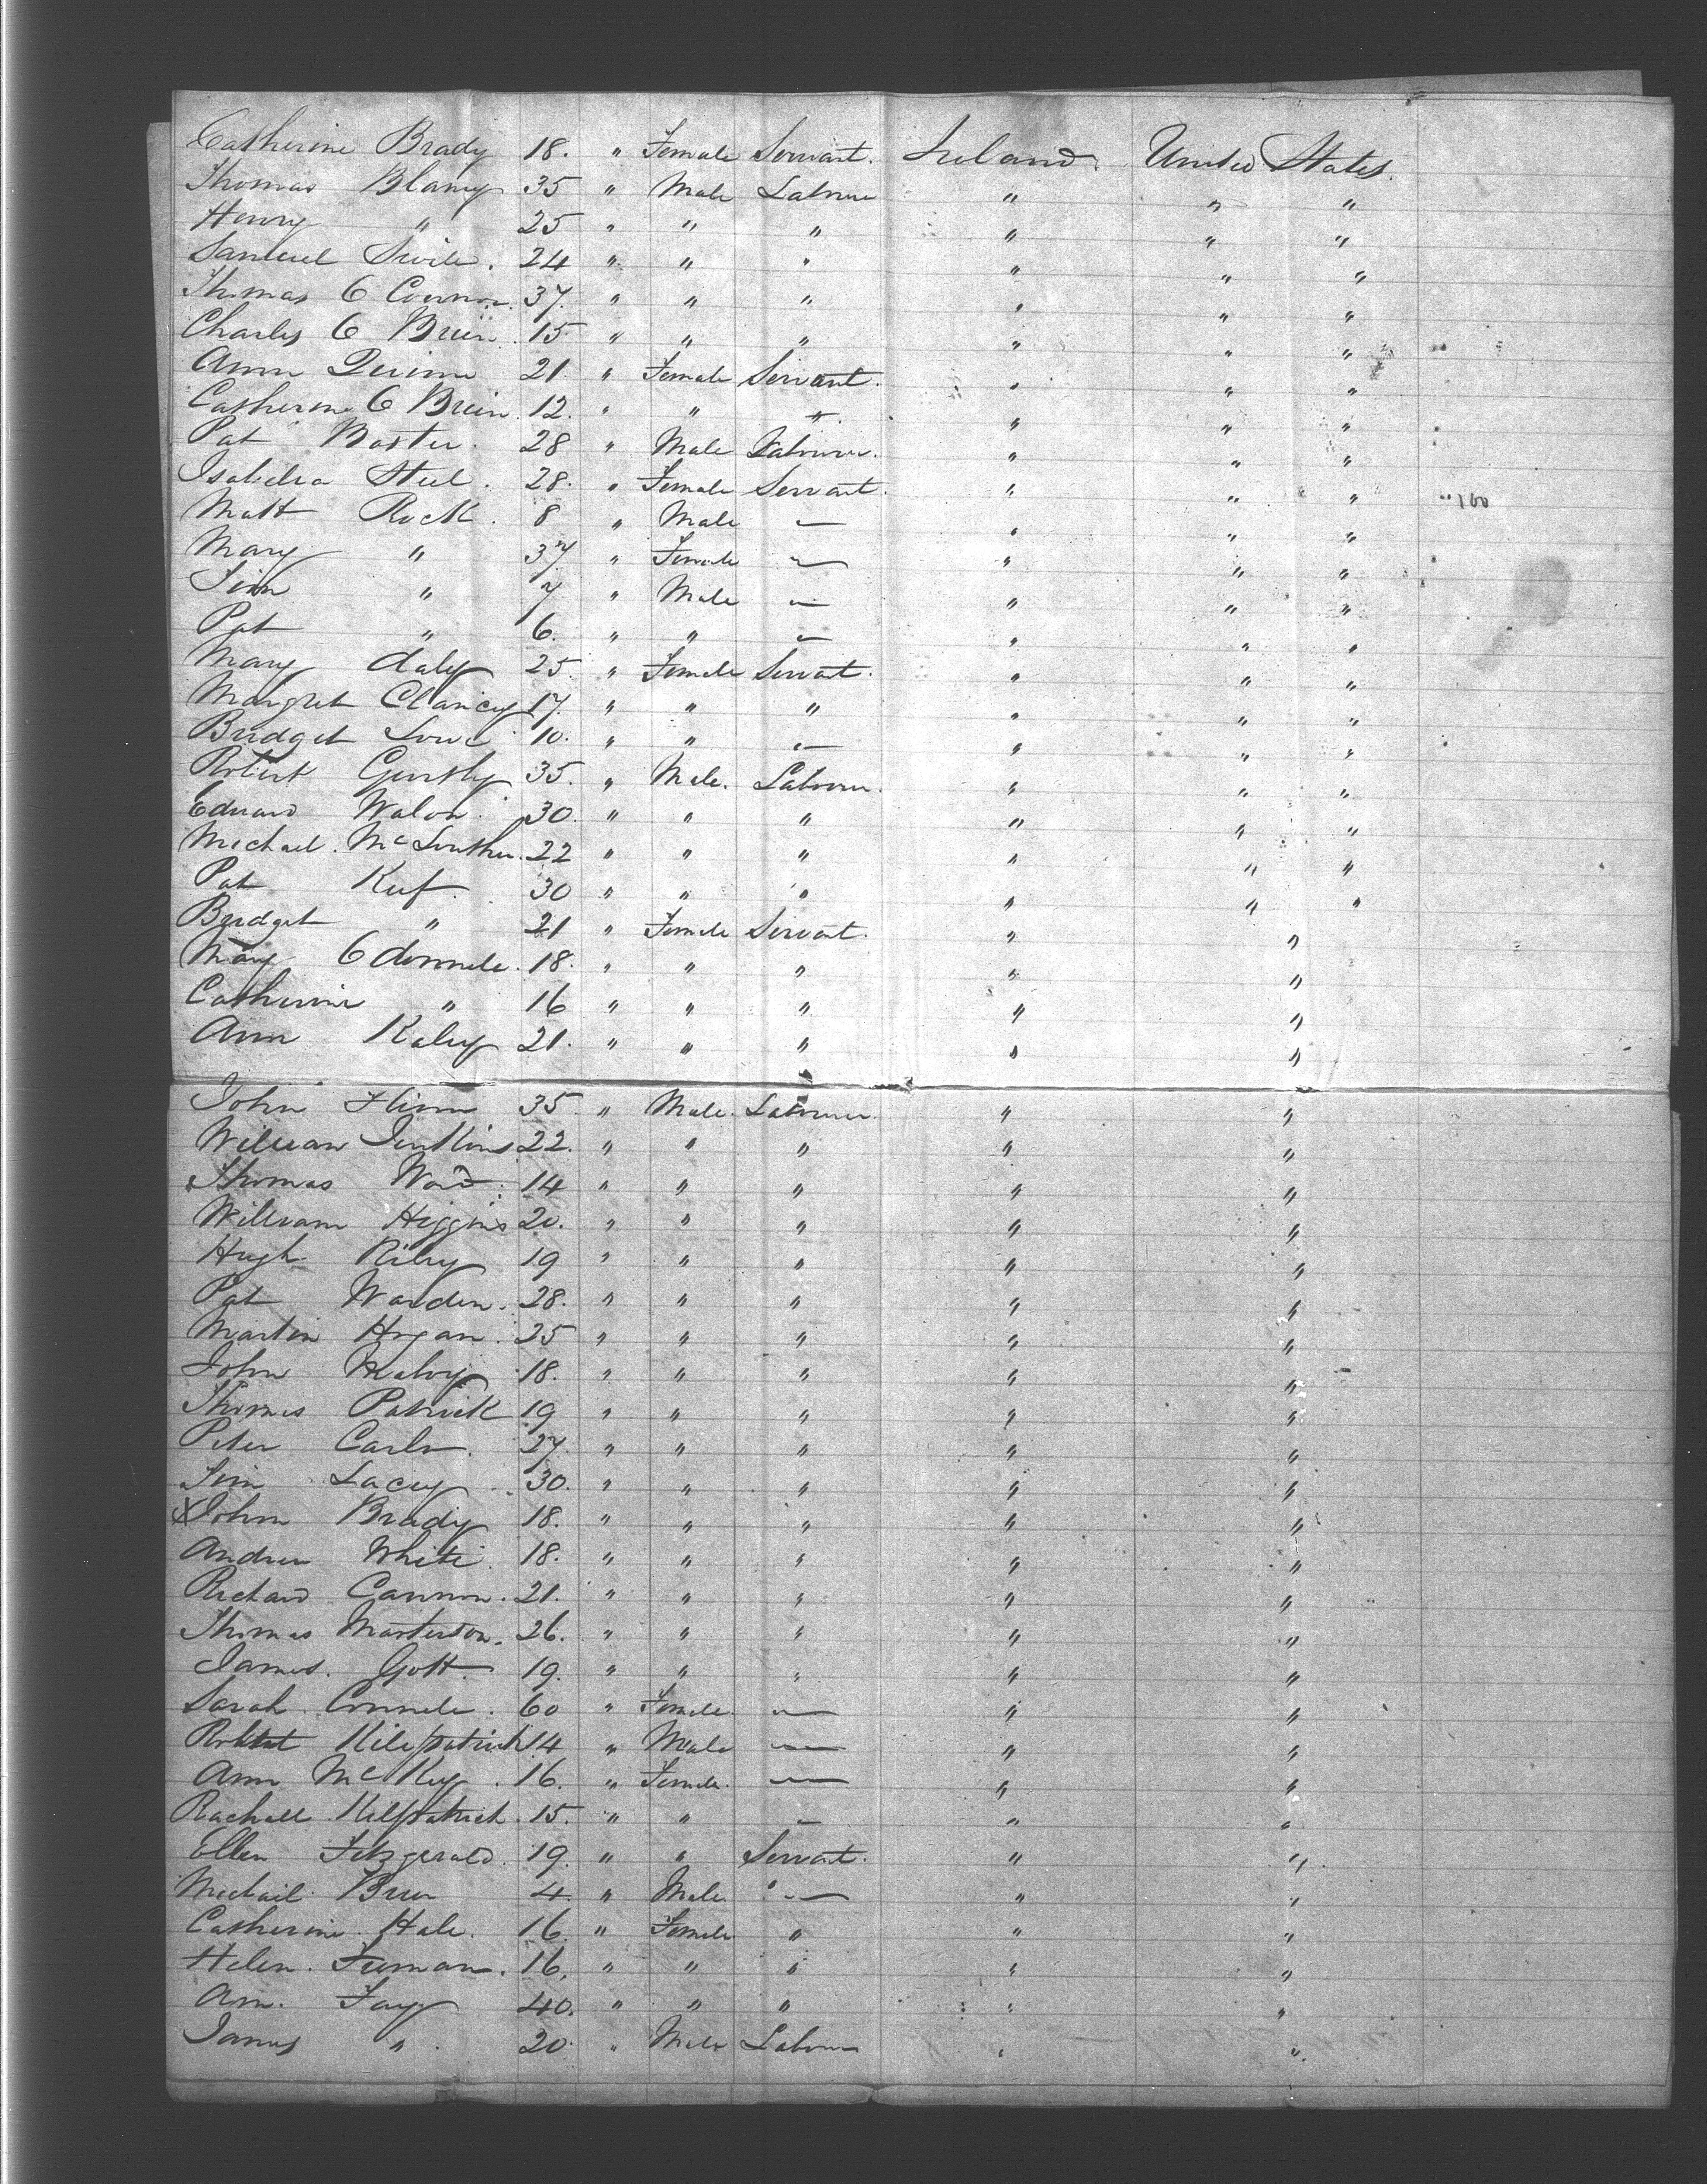 Catherine Brady 18. " Female Servant. Ireland. United States.
Thomas Blaney 35 " Male Labour " " "
Henry " 25 " " " " " "
Samuel 24 " " " " " "
Thomas O Connor 37. " " " " " "
Charles O Brien 15 " " " " " "
Ann Quinn 21 " Female Servant. " " "
Catherine O Brien. 12. " " " " " "
Pat 28 " Male Labourer. " " "
Isabella Steel. 28. " Female Servant. " " " 100
Matt Rock. 8 " Male — " " "
Mary " 37 " Female — " " "
Jim " 7 " Male — " " "
Pat " 6. " " — " " "
Mary Daly 25. " Female Servant. " " "
Margret Clancy 17. " " " " " "
Bridget Lowe 10. " " — " " "
Robert 35. " Male. Labourer. " " "
Edward Walon. 30. " " " " " "
Michael. 22 " " " " " "
Pat Keef. 30 " " " " " "
Bridget " 21 " Female Servant. " "
Mary O donnele. 18. " " " " "
Catherine " 16 " " " " "
Ann Kaley 21. " " " " "
John Flinn 35 " Male. Labourer. " "
William Jenkins 22. " " " " "
Thomas Ward. 14 " " " " "
William Higgins 20. " " " " "
Hugh Riley 19 " " " " "
Pat Warden. 28. " " " " "
Martin Hogan. 25 " " " " "
John Malvy 18. " " " " "
Thomas Patrick 19 " " " " "
Peter 27. " " " " "
Jim Lacey 30. " " " " "
X John Brady 18. " " " " "
Andrew White. 18. " " " " "
Richard Cannon. 21. " " " " "
Thomas Masterson. 26. " " " " "
James. Gott. 19. " " " " "
Sarah Connele. 60 " Female. — " "
Robert Kilepatrick 14 " Male — " "
Ann McKey. 16. " Female. — " "
Rachall Kilpatrick. 15. " " — " "
Ellen Fitzgerald. 19. " " Servant. " "
Michail 4. " Male — " "
Catherine Hale. 16. " Female " " "
Helen. Furman. 16. " " " " "
Ann. Fay 40. " " " " "
James " 20. " Male Labour " "